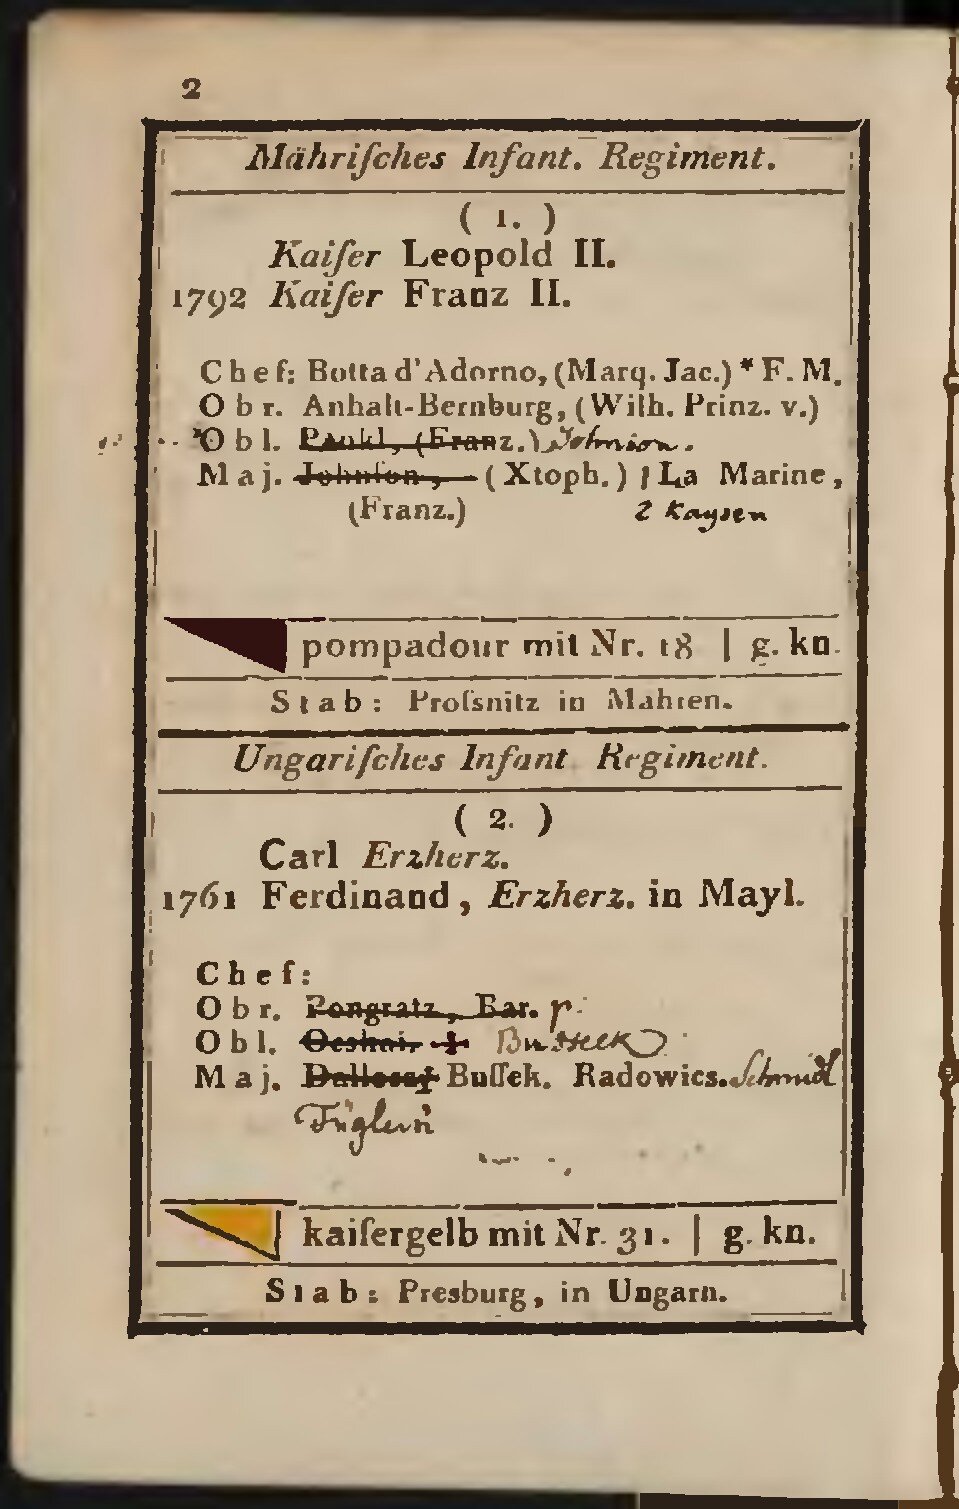 2
Mähriſches Infant. Regiment.
( 1. )
Kaiſer Leopold II.
1792 Kaiſer Franz II.
Chef: Botta d'Adorno, (Marq. Jac.) * F. M.
Obr. Anhalt-Bernburg, (Wilh. Prinz. v.)
Obl. Pankl, (Franz.) Johnson.
Maj. Johnſon, (Xtoph.) La Marine,
(Franz.) 2 Kaysen
pompadour mit Nr. 18 | g. kn.
Stab: Proſsnitz in Mahren.
Ungariſches Infant. Regiment.
( 2. )
Carl Erzherz.
1761 Ferdinand, Erzherz. in Mayl.
Chef:
Obr. Pongratz, Bar.
Obl. Busseck
Maj. Buſſek. Radowics. Schmidl
kaiſergelb mit Nr. 31. | g. kn.
Stab: Presburg, in Ungarn.